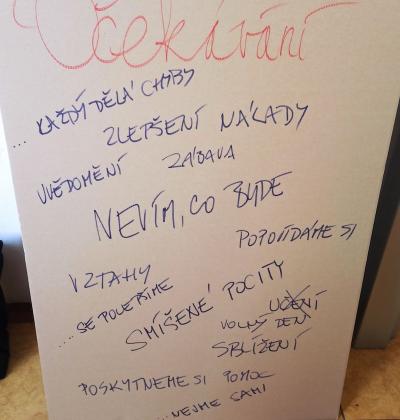 Očekávání
... KAŽDÝ DĚLÁ CHYBY
ZLEPŠENÍ NÁLADY
UVĚDOMĚNÍ
ZÁBAVA
NEVÍM, CO BUDE
POPOVÍDÁME SI
VZTAHY
... SE POLEPŠÍME
SMÍŠENÉ POCITY
UČENÍ
VOLNÝ DEN
SBLÍŽENÍ
POSKYTNEME SI POMOC
... NEJME SAMI